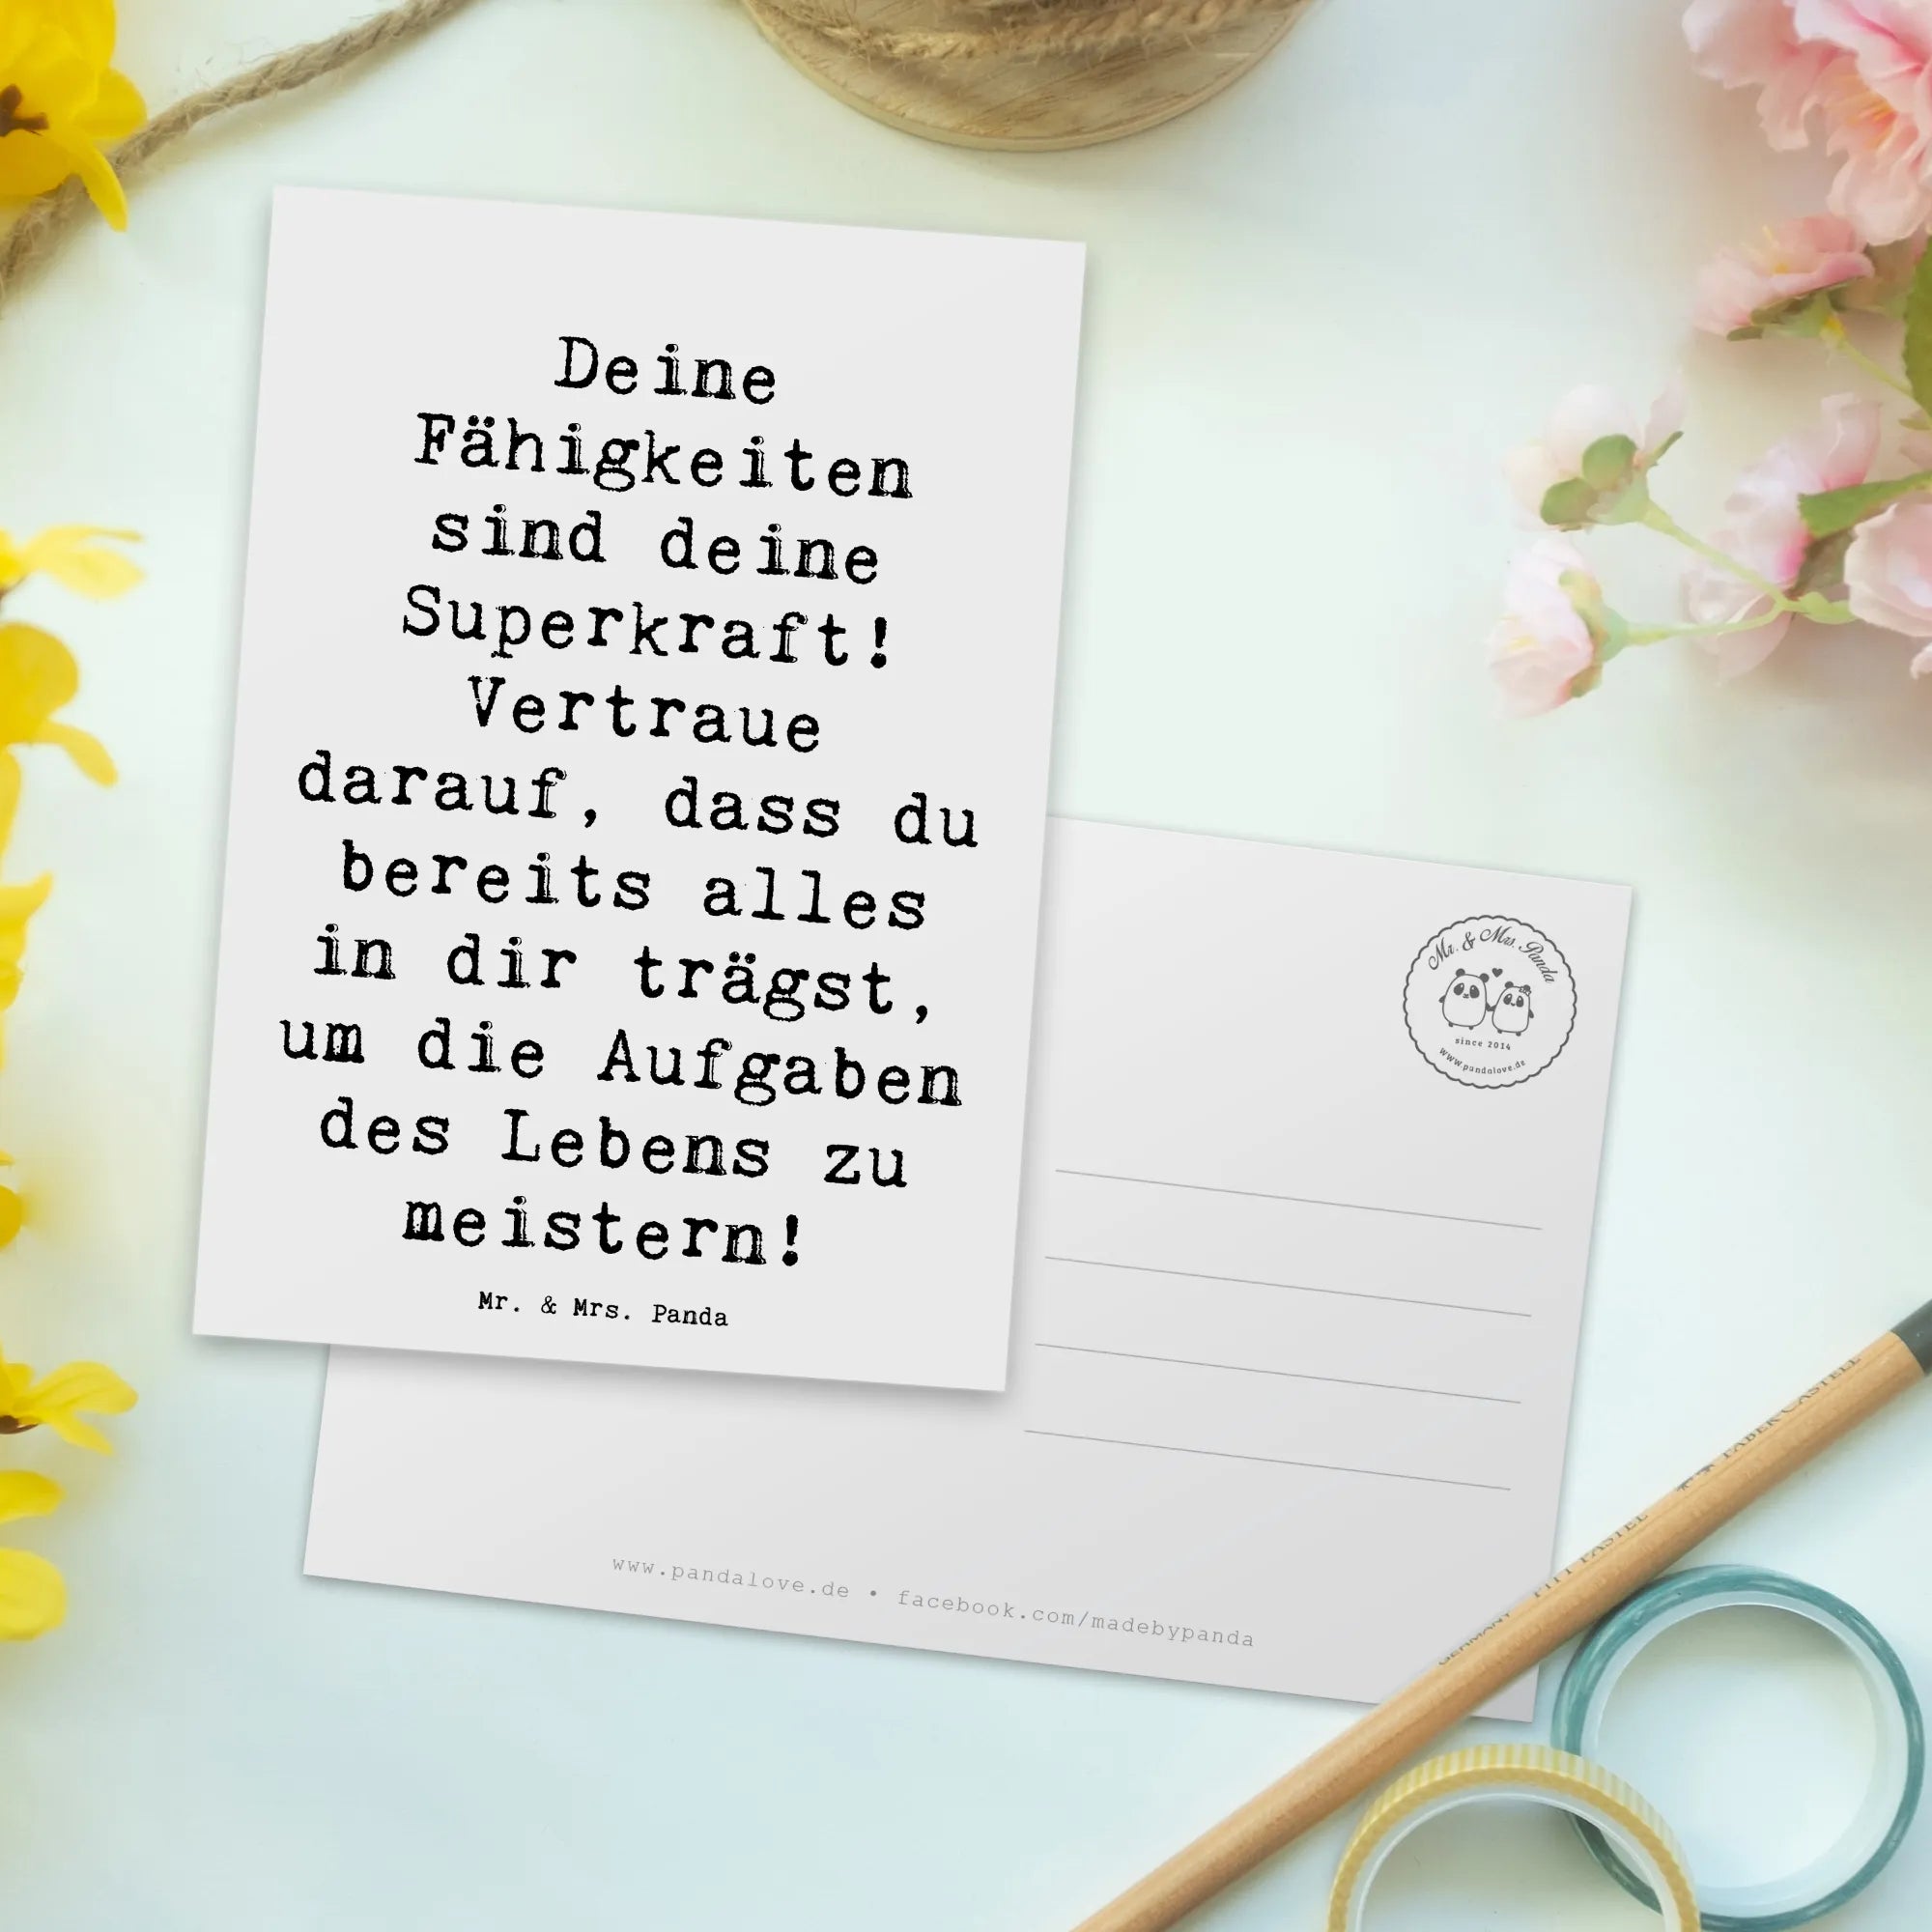 Deine
Fähigkeiten
sind deine
Superkraft!
Vertraue
darauf, dass du
bereits alles
in dir trägst,
um die Aufgaben
des Lebens zu
meistern!
Mr. & Mrs. Panda
Mr. & Mrs. Panda
since 2014
www.pandalove.de
www.pandalove.de • facebook.com/madebypanda
FABER-CASTELL
PITT PASTEL
GERMANY